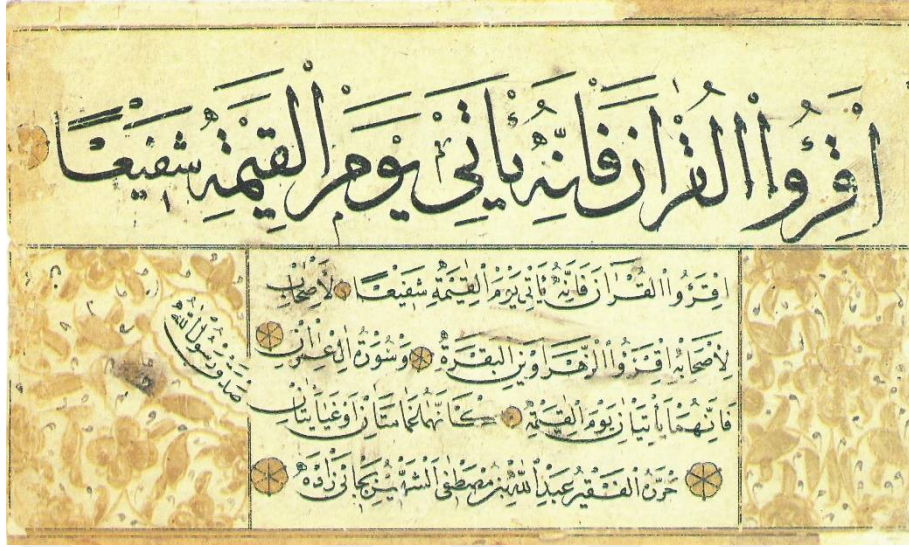 اِقْرَؤُا الْقُرْاٰنَ فَاِنَّهُ يَأْتِي يَوْمَ الْقِيٰمَةِ شَفِيعًا
اِقْرَؤُا الْقُرْاٰنَ فَاِنَّهُ يَأْتِي يَوْمَ الْقِيٰمَةِ شَفِيعًا لِاَصْحَابِ
لِاَصْحَابِهِ اِقْرَؤُا الزَّهْرَاوَيْنِ الْبَقَرَةَ وَسُورَةَ اٰلِ عِمْرَانَ
فَاِنَّهُمَا يَأْتِيَانِ يَوْمَ الْقِيٰمَةِ كَاَنَّهُمَا غَمَامَتَانِ اَوْ غَيَايَتَانِ
حَرَّرَهُ الْفَقِيرُ عَبْدُ اللّٰهِ بْنُ مُصْطَفَى الشَّهِيرُ زَادَه
صَدَقَ رَسُولُ اللّٰهِ